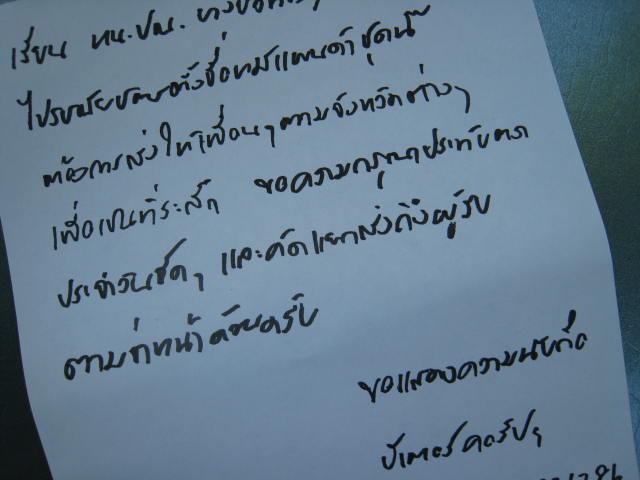 เรียน หน.ปณ.
ไปรษณียบัตรตั้งชื่อหมีแพนด้าชุดนี้
ต้องการส่งให้เพื่อนๆตามจังหวัดต่างๆ
เพื่อเป็นที่ระลึก ขอความกรุณาประทับตรา
ประจำวันชัดๆ และคัดแยกส่งถึงผู้รับ
ตามจ่าหน้าด้วยครับ
ขอแสดงความนับถือ